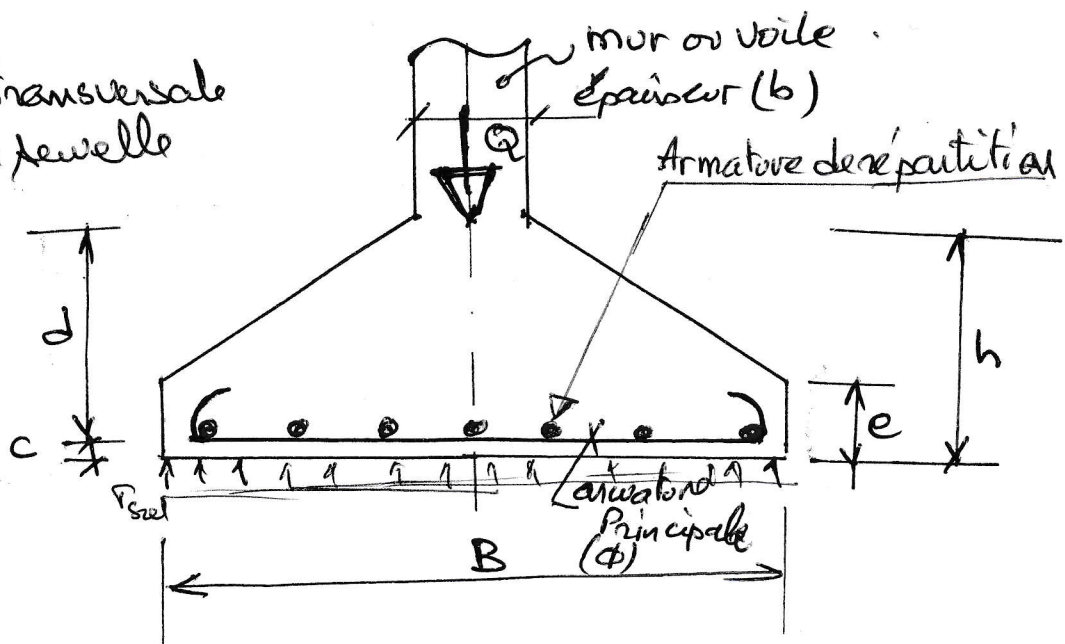 Transversale
semelle
mur ou voile
épaisseur (b)
Q
Armature de répartition
d
h
c
e
σsol
armature
Principale
(ϕ)
B